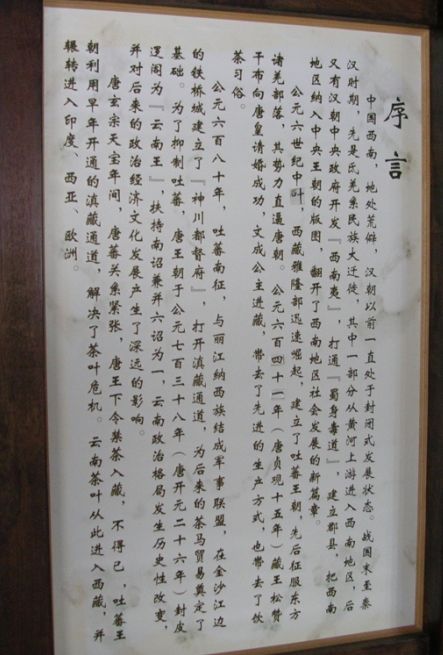 序言
中国西南，地处荒僻，汉朝以前一直处于封闭式发展状态。战国末至秦
汉时期，先是氐羌系民族大迁徙，其中一部分从黄河上游进入西南地区，后
又有汉朝中央政府开发『西南夷』，打通『蜀身毒道』，建立郡县，把西南
地区纳入中央王朝的版图，翻开了西南地区社会发展的新篇章。
公元六世纪中叶，西藏雅隆部迅速崛起，建立了吐蕃王朝，先后征服东方
诸羌部落，其势力直逼唐朝。公元六百四十一年（唐贞观十五年）藏王松赞
干布向唐皇请婚成功，文成公主进藏，带去了先进的生产方式，也带去了饮
茶习俗。
公元六百八十年，吐蕃南征，与丽江纳西族结成军事联盟，在金沙江边
的铁桥城建立了『神川都督府』，打开滇藏通道，为后来的茶马贸易奠定了
基础。为了抑制吐蕃，唐王朝于公元七百三十八年（唐开元二十六年）封皮
逻阁为『云南王』，扶持南诏兼并六诏为一，云南政治格局发生历史性改变，
并对后来的政治经济文化发展产生了深远的影响。
唐玄宗天宝年间，唐蕃关系紧张，唐王下令禁茶入藏，不得已，吐蕃王
朝利用早年开通的滇藏通道，解决了茶叶危机。云南茶叶从此进入西藏，并
辗转进入印度、西亚、欧洲。